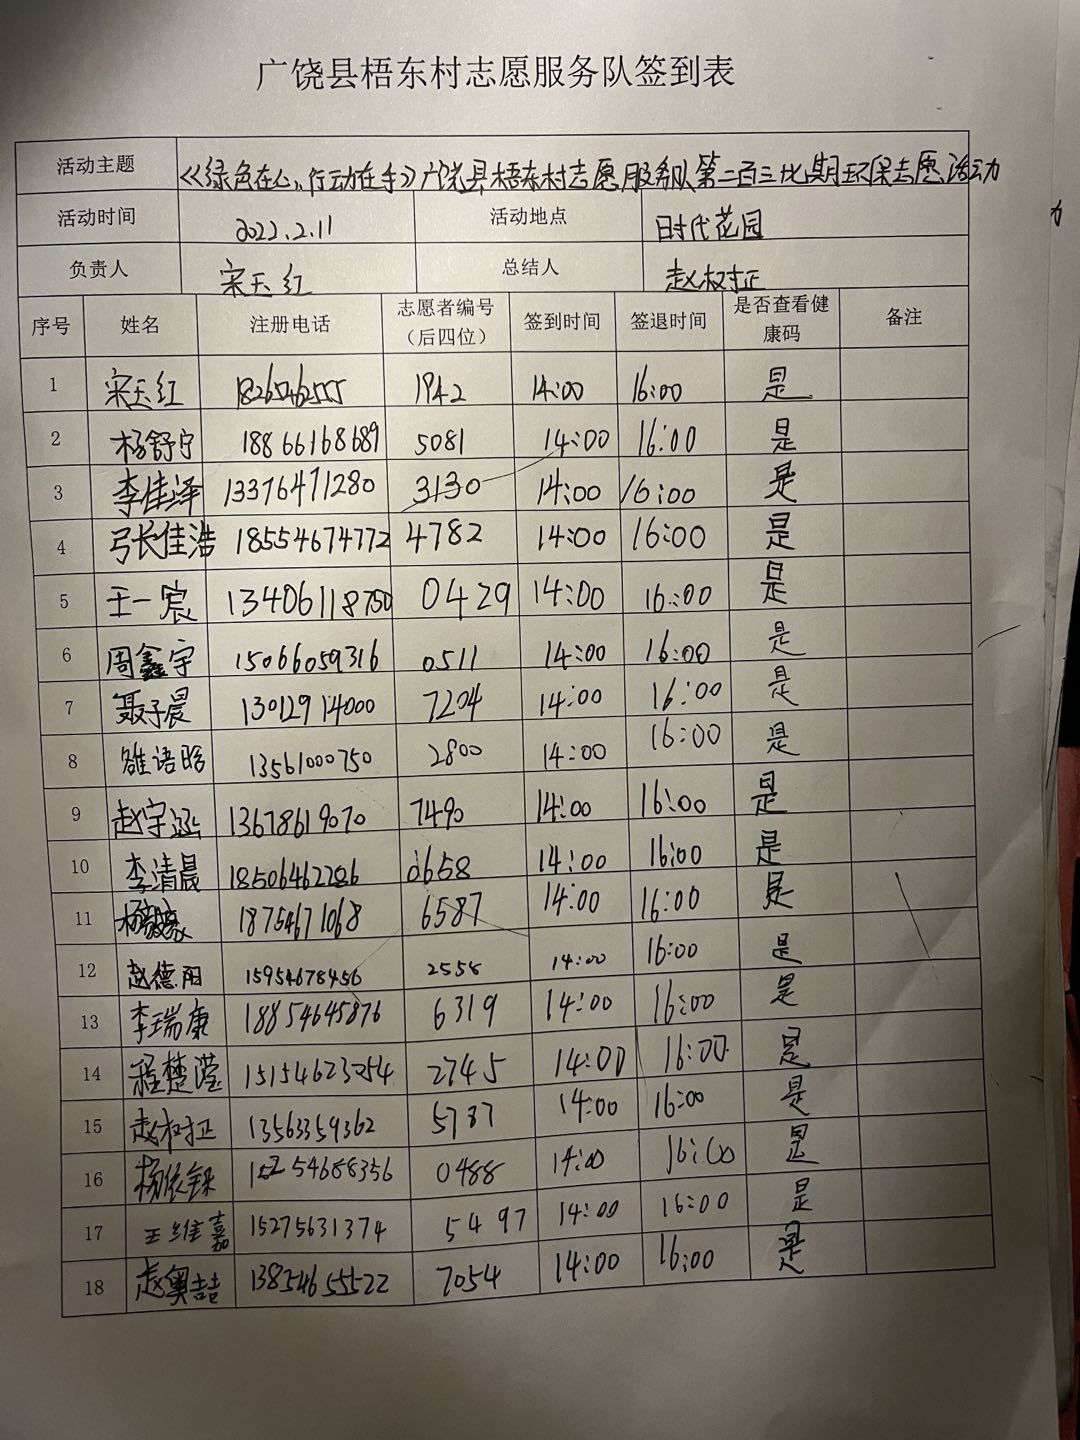 广饶县梧东村志愿服务队签到表
活动主题 《绿色在心,行动在手》广饶县梧东村志愿服务队第二百三十七期环保志愿活动
活动时间 2022.2.11 活动地点 时代花园
负责人 宋玉红 总结人 赵树正
序号 姓名 注册电话 志愿者编号（后四位） 签到时间 签退时间 是否查看健康码 备注
1 宋玉红 18265462555 1942 14:00 16:00 是
2 杨舒宁 18866168689 5081 14:00 16:00 是
3 李佳泽 13376471280 3130 14:00 16:00 是
4 张佳浩 18554674772 4782 14:00 16:00 是
5 王一宸 13406118750 0429 14:00 16:00 是
6 周鑫宇 15066059316 0511 14:00 16:00 是
7 聂子晨 13012914000 7204 14:00 16:00 是
8 雒语晗 13561000750 2800 14:00 16:00 是
9 赵宇涵 13678619070 7490 14:00 16:00 是
10 李清晨 18506462286 0658 14:00 16:00 是
11 18754671068 6587 14:00 16:00 是
12 赵德阳 15954678456 2558 14:00 16:00 是
13 李瑞康 18854645876 6319 14:00 16:00 是
14 程楚滢 15154623054 2745 14:00 16:00 是
15 赵树正 13563359362 5787 14:00 16:00 是
16 杨依铼 15254688356 0488 14:00 16:00 是
17 王维嘉 15275631374 5497 14:00 16:00 是
18 赵奥喆 13854655522 7054 14:00 16:00 是